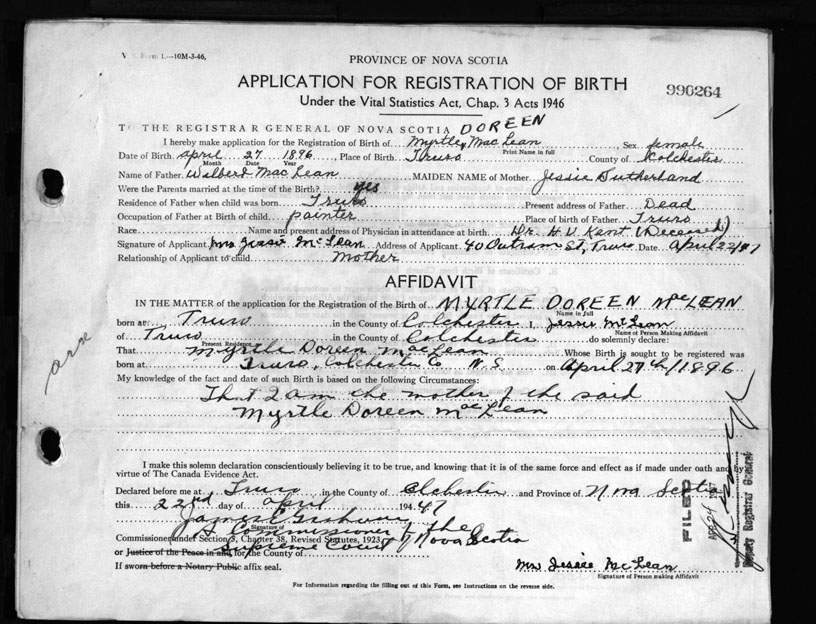 Form 1.—10M-3-46,
PROVINCE OF NOVA SCOTIA
APPLICATION FOR REGISTRATION OF BIRTH
990264
Under the Vital Statistics Act, Chap. 3 Acts 1946
TO THE REGISTRAR GENERAL OF NOVA SCOTIA DOREEN
I hereby make application for the Registration of Birth of Myrtle, Mac Lean Sex female
Print Name in full
Date of Birth April 27 1896 Place of Birth Truro County of Colchester
Month Date Year
Name of Father Wilberd Mac Lean MAIDEN NAME of Mother Jessie Sutherland
Were the Parents married at the time of the Birth? yes
Residence of Father when child was born Truro Present address of Father Dead
Occupation of Father at Birth of child painter Place of birth of Father Truro
Race Name and present address of Physician in attendance at birth Dr. H.V. Kent (Deceased)
Signature of Applicant Mrs Jessie McLean Address of Applicant 40 Outram St, Truro Date April 22/47
Relationship of Applicant to child Mother
AFFIDAVIT
IN THE MATTER of the application for the Registration of the Birth of MYRTLE DOREEN McLEAN
Name in full
born at Truro in the County of Colchester I, Jessie McLean
Name of Person Making Affidavit
of Truro in the County of Colchester do solemnly declare:
Present Residence
That Myrtle Doreen MacLean Whose Birth is sought to be registered was
born at Truro, Colchester Co N.S on April 27th/1896
My knowledge of the fact and date of such Birth is based on the following Circumstances:
That I am the mother of the said
Myrtle Doreen MacLean
I make this solemn declaration conscientiously believing it to be true, and knowing that it is of the same force and effect as if made under oath and by
virtue of The Canada Evidence Act.
Declared before me at Truro in the County of Colchester and Province of Nova Scotia
this 22nd day of April 194 47
James E
Signature of
A Commissioner of the
Commissioner under Section 9, Chapter 38, Revised Statutes, 1923,
Supreme Court of Nova Scotia
or Justice of the Peace in and for the County of
If sworn before a Notary Public affix seal.
Mrs Jessie McLean
Signature of Person making Affidavit
For Information regarding the filling out of this Form, see Instructions on the reverse side.
FILED
Deputy Registrar General